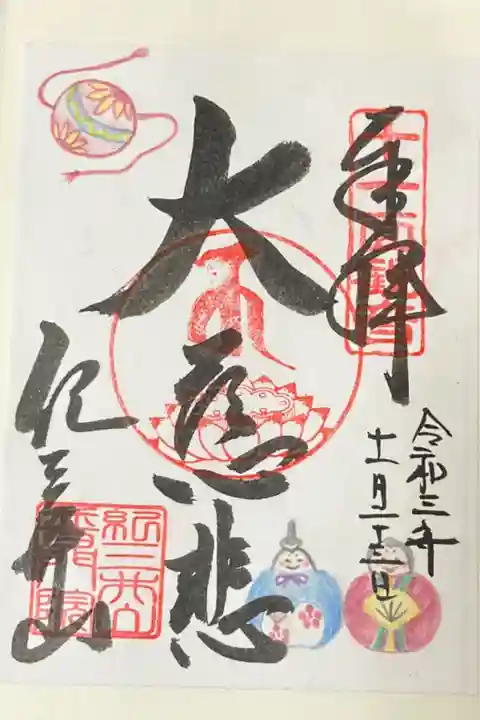 奉拝
令和三年
十一月二十三日
大慈悲
紀三井山
紀三井山